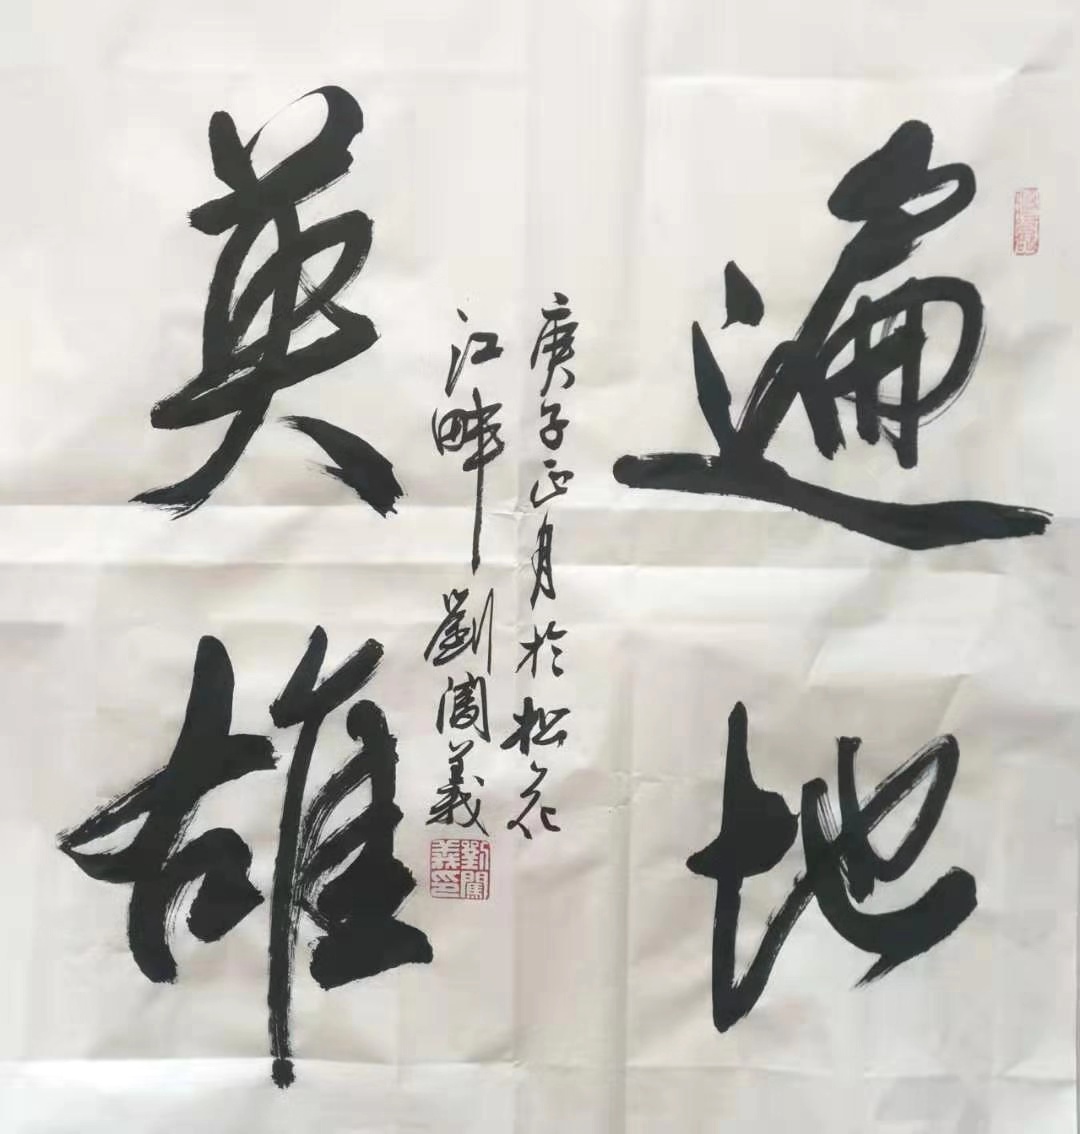 遍地
英雄
庚子正月於松花
江畔劉闖義
劉闖
義印